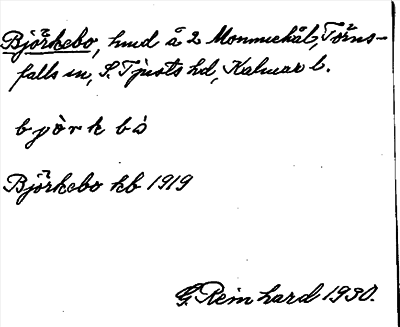 Björkebo, hmd å 2 Monnuckål, Törns-
falls sn, S. Tjusts hd, Kalmar l.
björkbò
Björkebo kb 1919
G. Reinhard 1930.